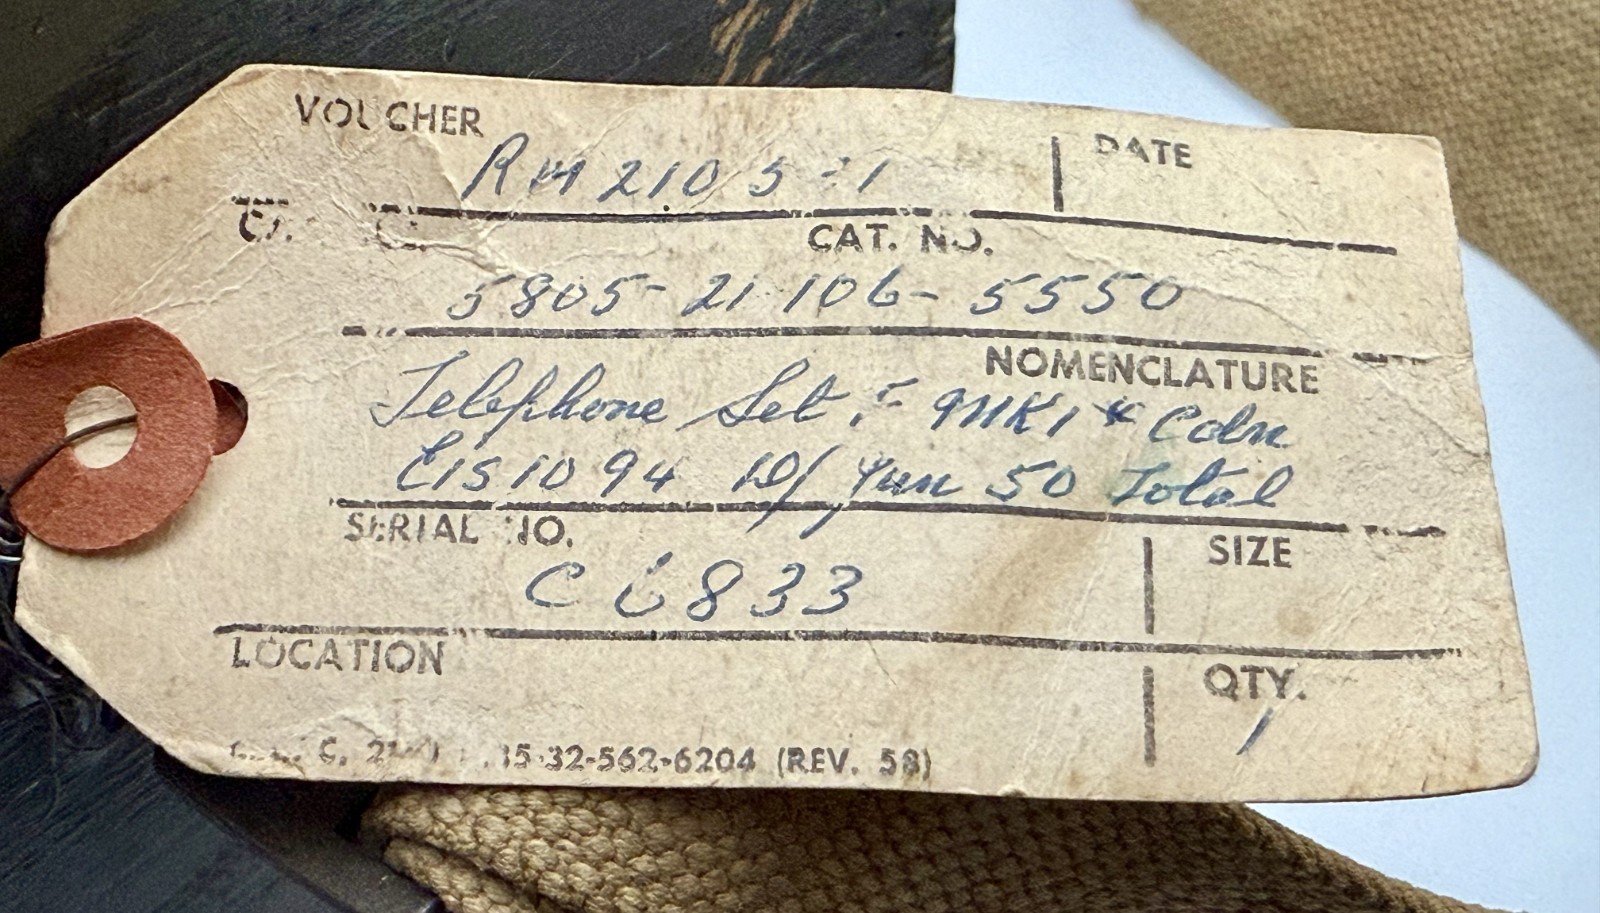 VOUCHER DATE
RM 2105-1
CAT. NO.
5805-21 106-5550
NOMENCLATURE
Telephone Set F 9MK1 * Cdn
EIS 1094 D/ Jun 50 Total
SERIAL NO. SIZE
C 6833
LOCATION QTY.
1
32-562-6204 (REV. 58)